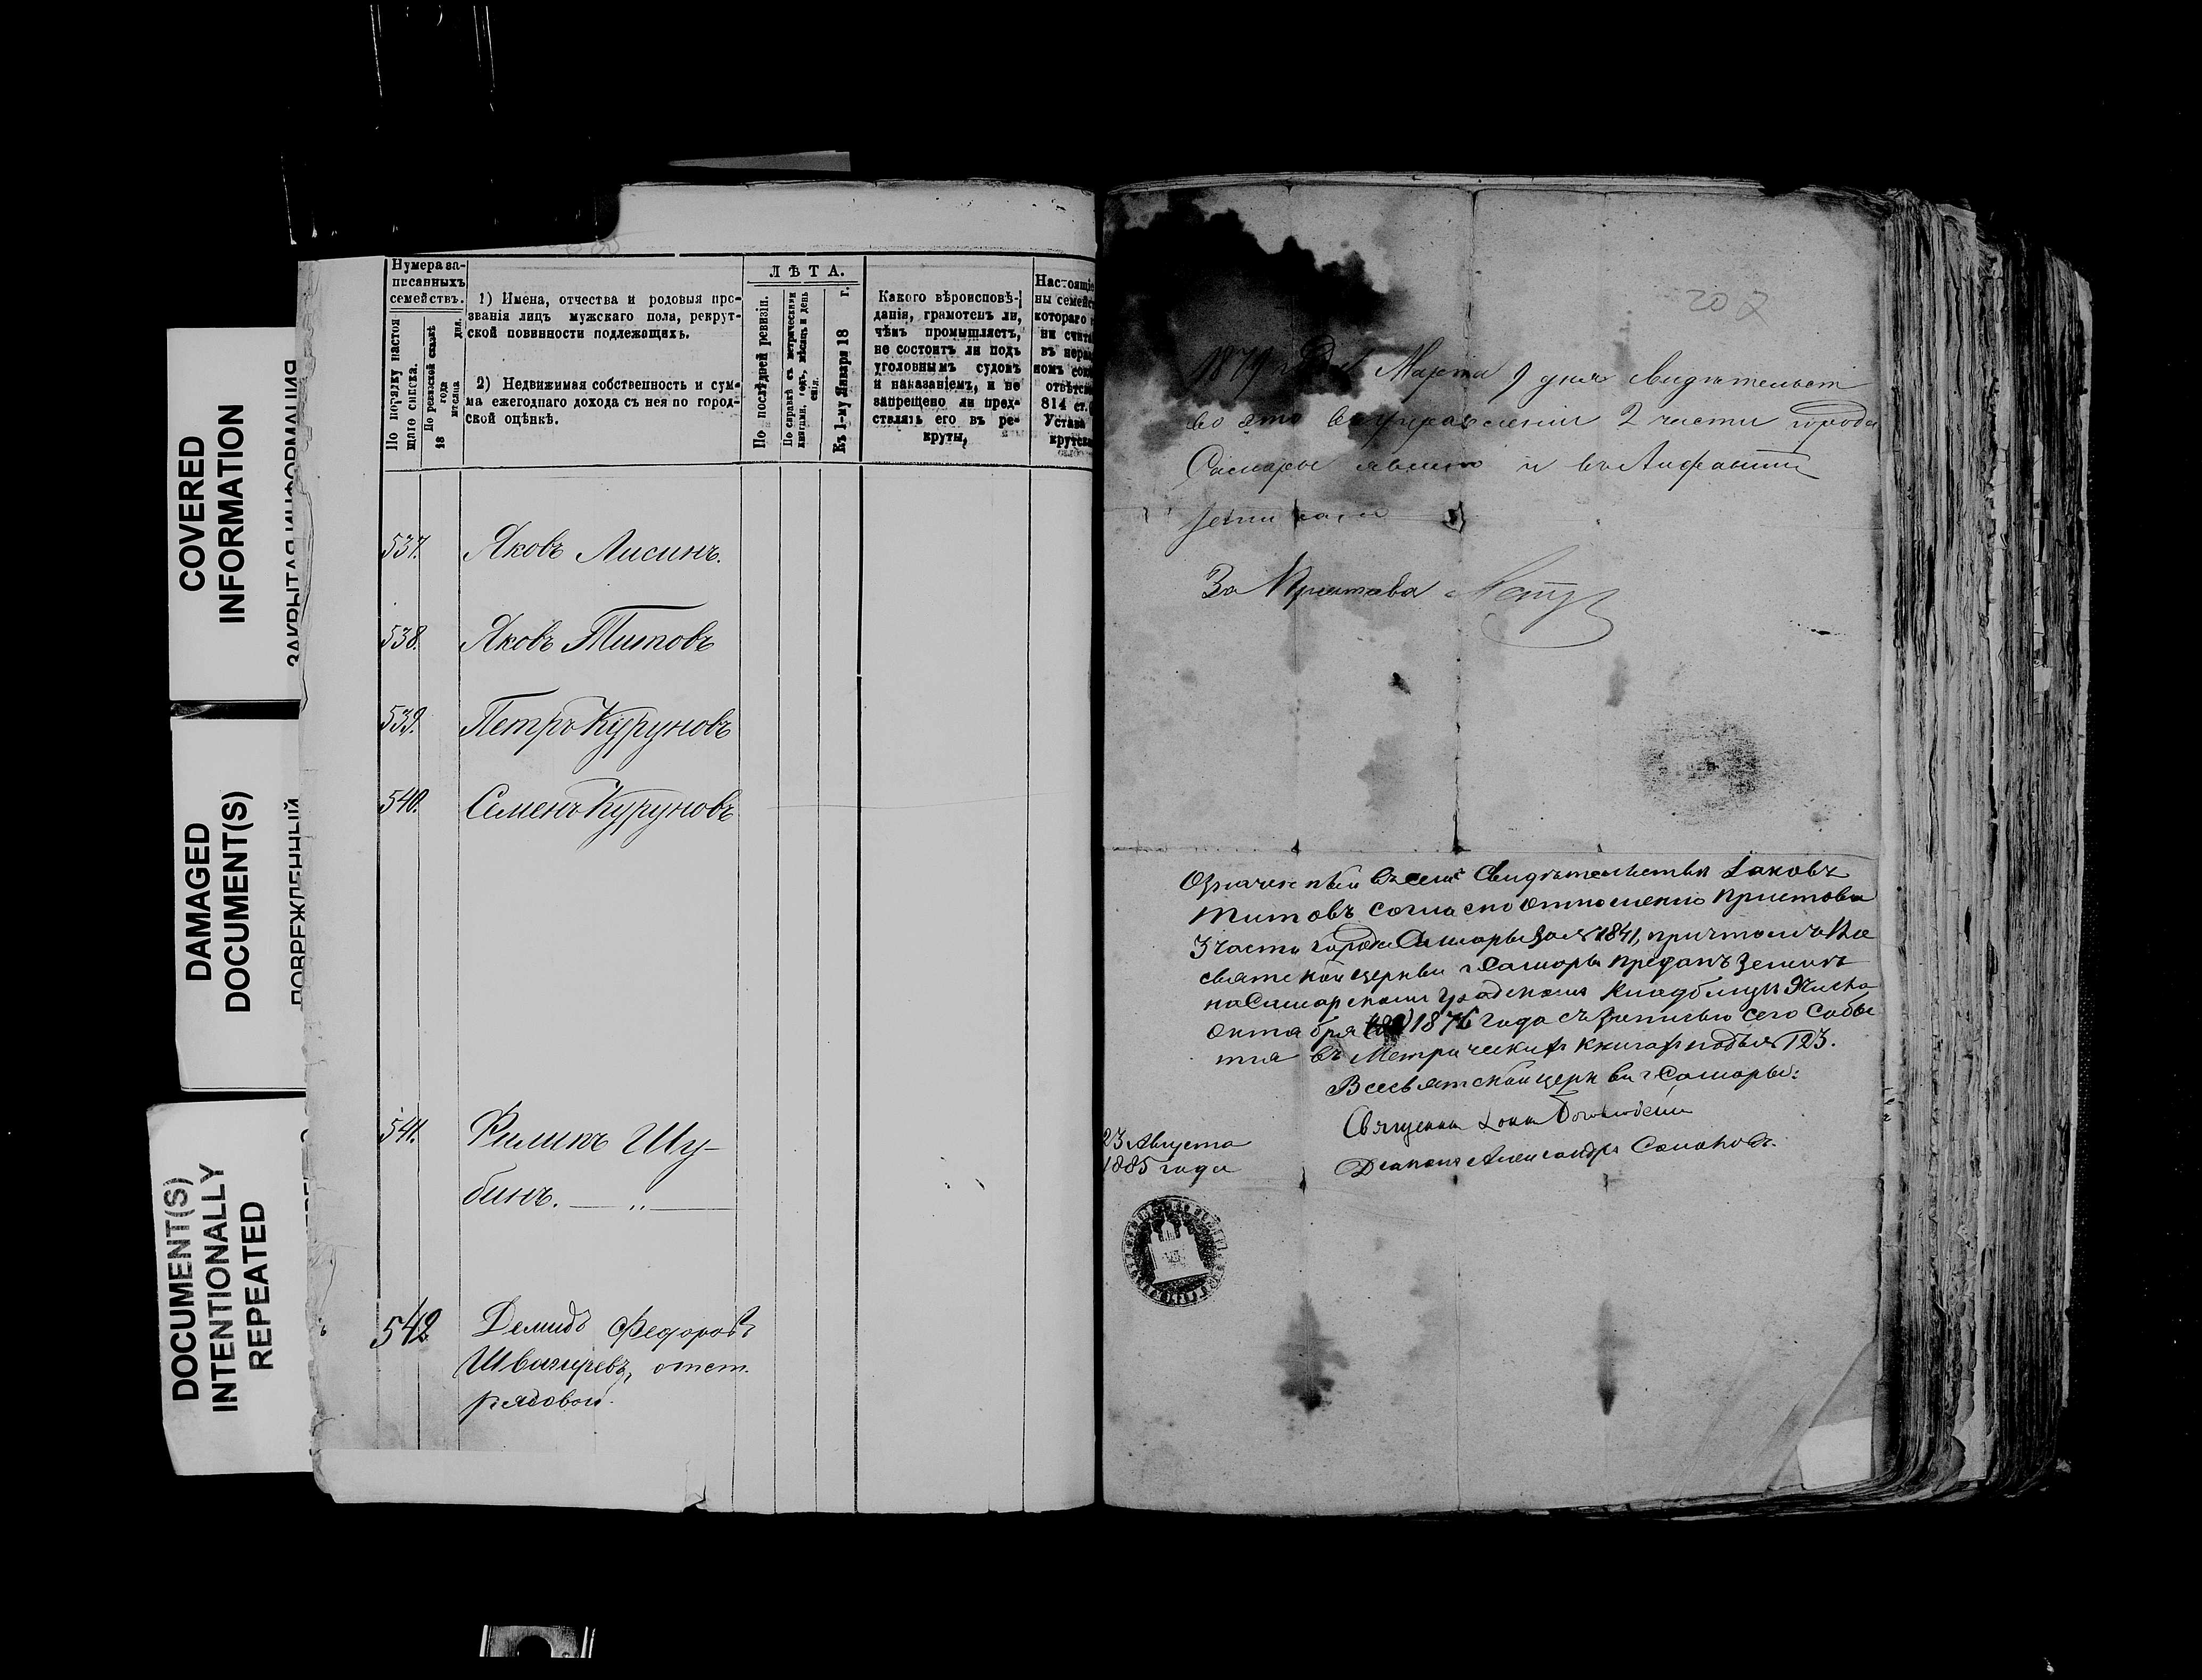 COVERED
INFORMATION
ЗАКРЫТАЯ ИНФОРМАЦИЯ
DAMAGED
DOCUMENT(S)
ПОВРЕЖДЕННЫЙ
DOCUMENT(S)
INTENTIONALLY
REPEATED
Нумера за-
писанныхъ
семействъ.
По порядку настоя
щаго списка.
По ревизской сказкѣ
18 года
мѣсяца дня.
1) Имена, отчества и родовыя про-
званія лицъ мужскаго пола, рекрут-
ской повинности подлежащихъ.
2) Недвижимая собственность и сум-
ма ежегоднаго дохода съ нея по город-
ской оцѣнкѣ.
ЛѢТА.
По послѣдней ревизіи.
По справкѣ съ метрическими
книгами, годъ, мѣсяцъ и день
Къ 1-му Января 18 г.
Какого вѣроисповѣ-
данія, грамотенъ ли,
чѣмъ промышляетъ,
не состоитъ ли подъ
уголовнымъ судомъ
и наказаніемъ, и не
запрещено ли пред-
ставлять его въ ре-
круты,
Настоящіе
ны семейс
котораго
ни счита
въ нераз
номъ сос
отвѣтств
814 ст.
Устава
крутска
537. Яковъ Лисинъ.
538. Яковъ Титовъ
539. Петръ Куруновъ
540. Семенъ Куруновъ
541. Филипъ Шу-
бинъ. — „ —
542 Демидъ Федоровъ
отст.
рядовой.
202
1879 Марта 9 дня свидѣтельст
во это въ управленіи 2 части города
Самары явлено и въ
За Пристава
Означенный въ семъ свидѣтельствѣ Іаковъ
Титовъ согласно отношенію Пристава
3 части города Самары за № 1841, причтомъ Все
святской церкви г. Самары преданъ землѣ
на Самарскомъ градскомъ кладбищѣ числа
Октября 1876 года съ записью сего собы
тія въ Метрическихъ книгахъ подъ № 123.
Всесвятской церкви г. Самары:
Священникъ Іоаннъ
Діаконъ Александръ
23 Августа
1885 года